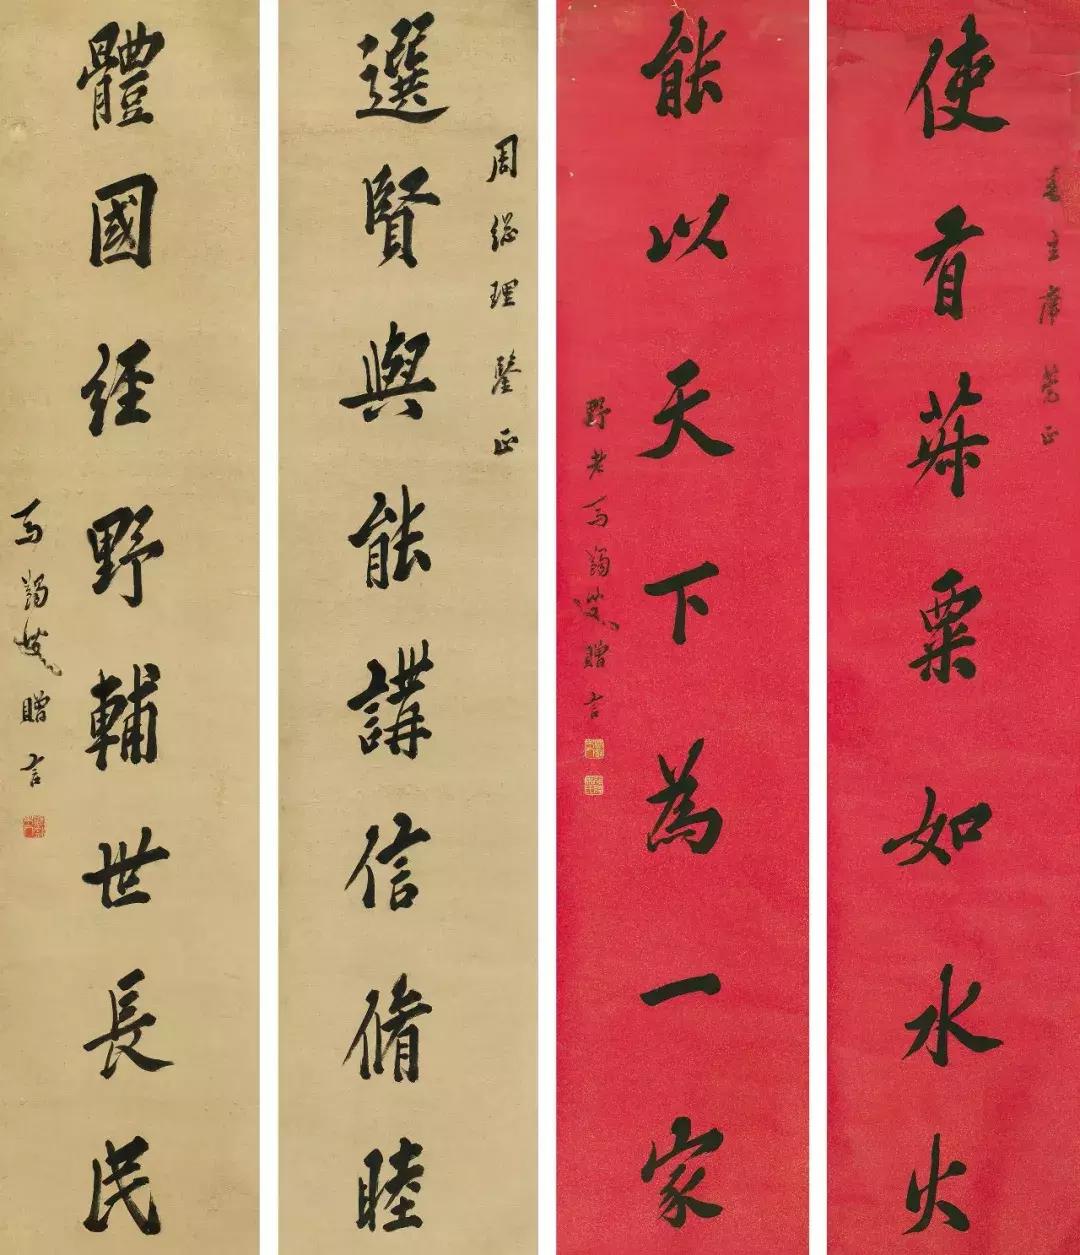 毛主席正
使有菽粟如水火
能以天下為一家
野老馬蠲叟贈言
周緫理鑒正
選賢與能講信脩睦
體國經野輔世長民
馬蠲叟贈言